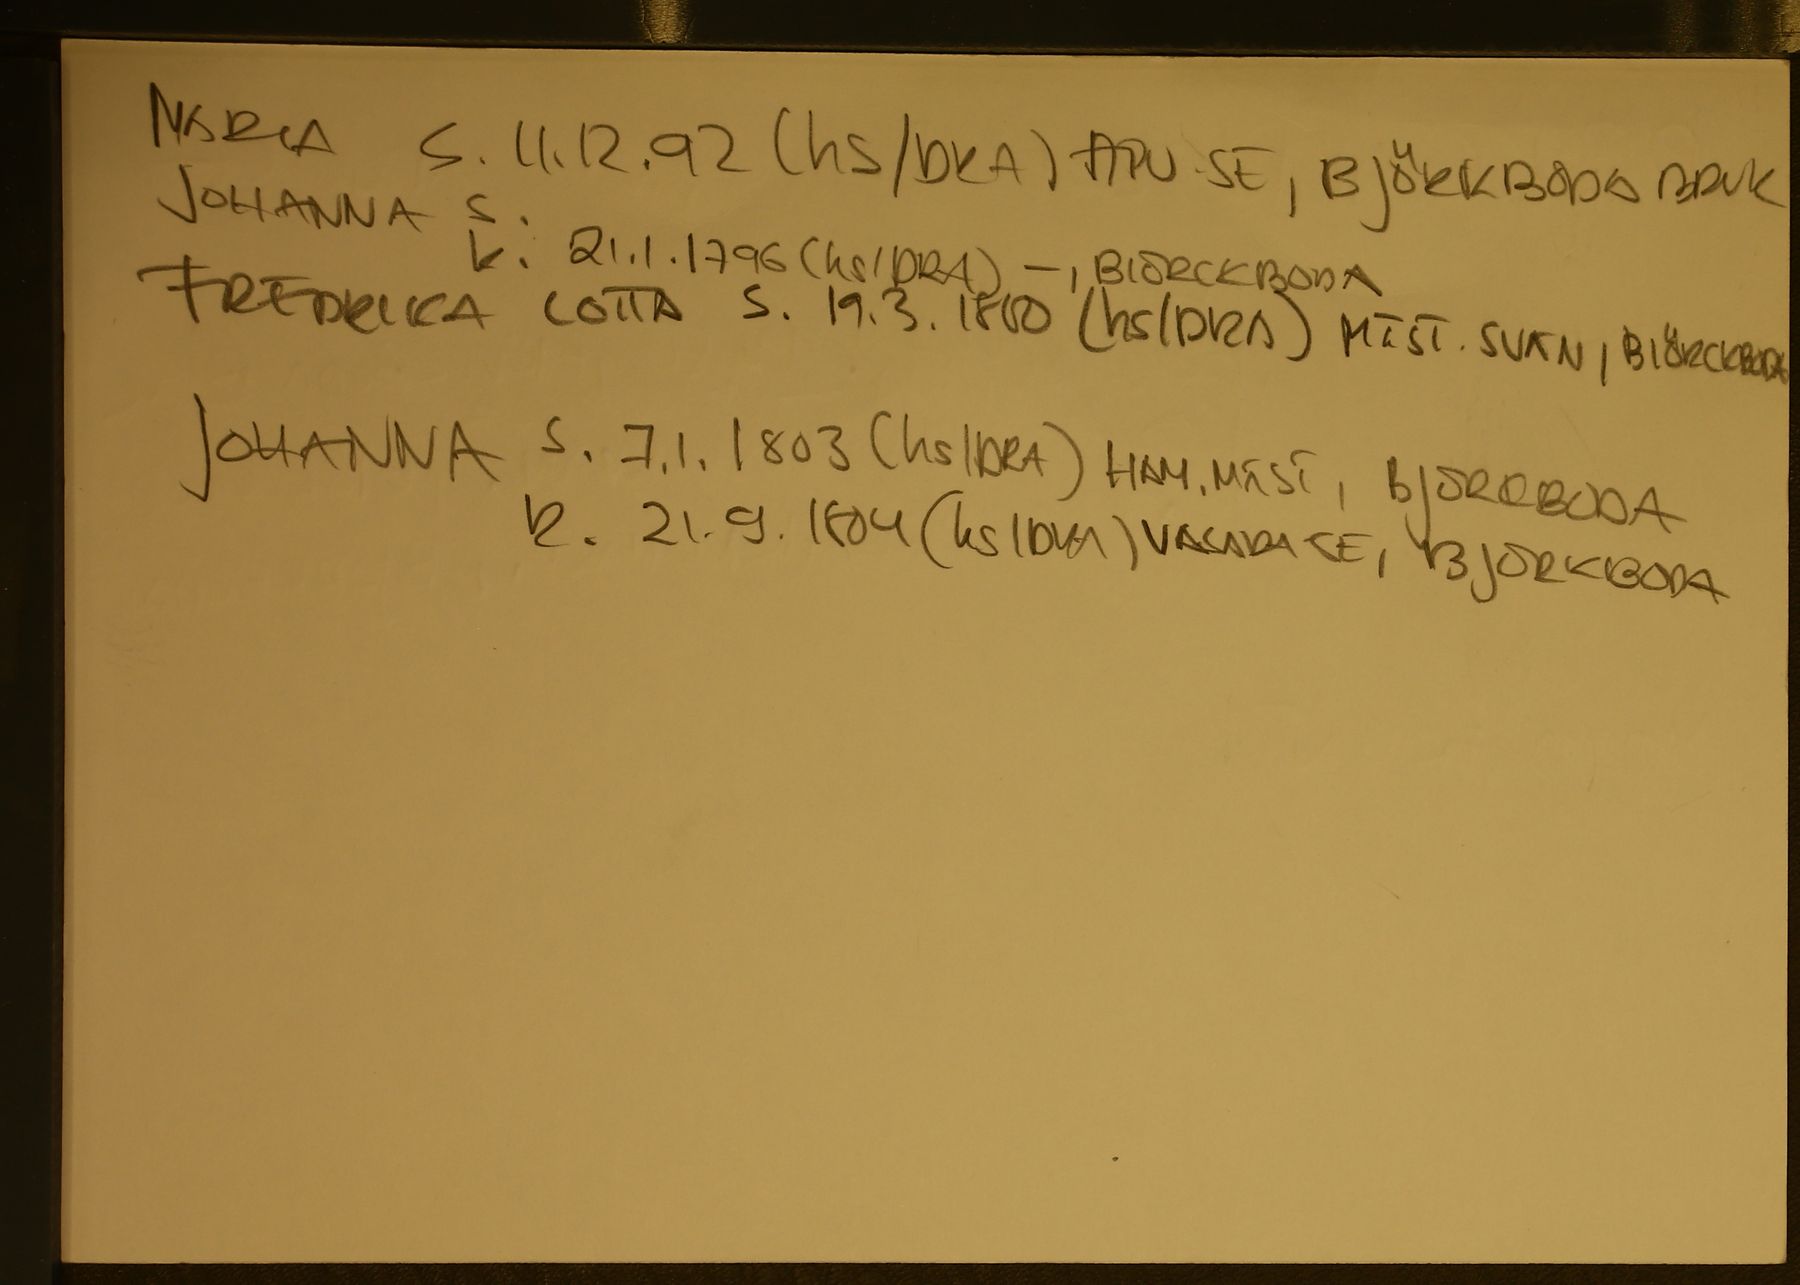 MARIA S. 11.12.92 (hs/DRA) APU.SE, BJÖRKBODA BRUK
JOHANNA S.
k. 21.1.1796 (hs/DRA) –, BIÖRCKBODA
FREDRICA LOTTA S. 19.3.1800 (hs/DRA) MEST. SVAN, BIÖRCKBODA
JOHANNA S. 7.1.1803 (hs/DRA) HAM.MEST, BJÖRKBODA
k. 21.9.1804 (hs/DRA) VASARASE, BJÖRKBODA